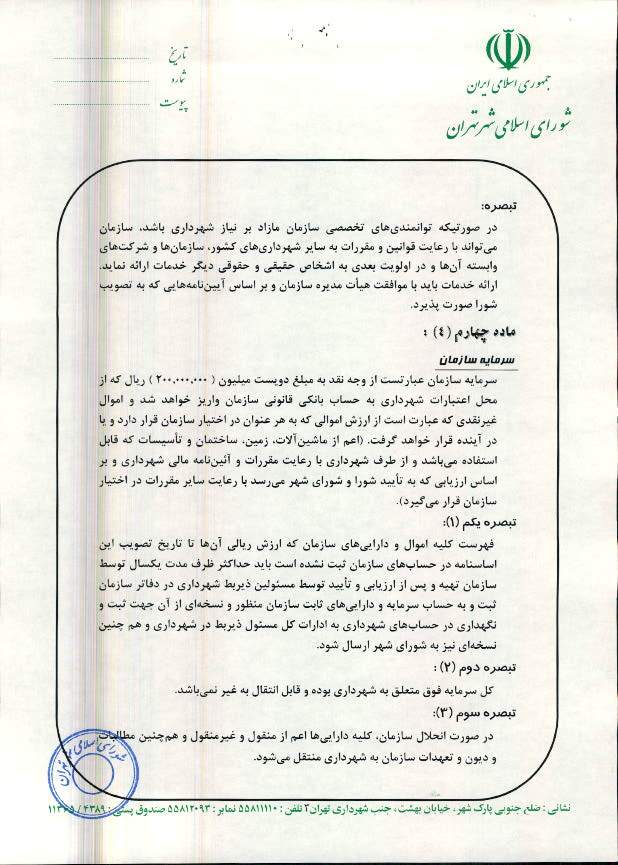 جمهوری اسلامی ایران
شورای اسلامی شهر تهران
تاریخ
شماره
پیوست
تبصره:
در صورتیکه توانمندی‌های تخصصی سازمان مازاد بر نیاز شهرداری باشد، سازمان
می‌تواند با رعایت قوانین و مقررات به سایر شهرداری‌های کشور، سازمان‌ها و شرکت‌های
وابسته آن‌ها و در اولویت بعدی به اشخاص حقیقی و حقوقی دیگر خدمات ارائه نماید.
ارائه خدمات باید با موافقت هیأت مدیره سازمان و بر اساس آیین‌نامه‌هایی که به تصویب
شورا صورت پذیرد.
ماده چهارم (۴) :
سرمایه سازمان
سرمایه سازمان عبارتست از وجه نقد به مبلغ دویست میلیون ( ۲۰۰,۰۰۰,۰۰۰ ) ریال که از
محل اعتبارات شهرداری به حساب بانکی قانونی سازمان واریز خواهد شد و اموال
غیرنقدی که عبارت است از ارزش اموالی که به هر عنوان در اختیار سازمان قرار دارد و یا
در آینده قرار خواهد گرفت. (اعم از ماشین‌آلات، زمین، ساختمان و تأسیسات که قابل
استفاده می‌باشد و از طرف شهرداری با رعایت مقررات و آئین‌نامه مالی شهرداری و بر
اساس ارزیابی که به تأیید شورا و شورای شهر می‌رسد با رعایت سایر مقررات در اختیار
سازمان قرار می‌گیرد).
تبصره یکم (۱):
فهرست کلیه اموال و دارایی‌های سازمان که ارزش ریالی آن‌ها تا تاریخ تصویب این
اساسنامه در حساب‌های سازمان ثبت نشده است باید حداکثر ظرف مدت یکسال توسط
سازمان تهیه و پس از ارزیابی و تأیید توسط مسئولین ذیربط شهرداری در دفاتر سازمان
ثبت و به حساب سرمایه و دارایی‌های ثابت سازمان منظور و نسخه‌ای از آن جهت ثبت و
نگهداری در حساب‌های شهرداری به ادارات کل مسئول ذیربط در شهرداری و هم چنین
نسخه‌ای نیز به شورای شهر ارسال شود.
تبصره دوم (۲) :
کل سرمایه فوق متعلق به شهرداری بوده و قابل انتقال به غیر نمی‌باشد.
تبصره سوم (۳):
در صورت انحلال سازمان، کلیه دارایی‌ها اعم از منقول و غیرمنقول و هم‌چنین مطالبات
و دیون و تعهدات سازمان به شهرداری منتقل می‌شود.
شورای اسلامی شهر تهران
نشانی : ضلع جنوبی پارک شهر، خیابان بهشت، جنب شهرداری تهران۲ تلفن : ۵۵۸۱۱۱۱۰ نمابر : ۵۵۸۱۲۰۹۳ صندوق پستی : ۴۳۸۹ / ۱۱۳۶۵